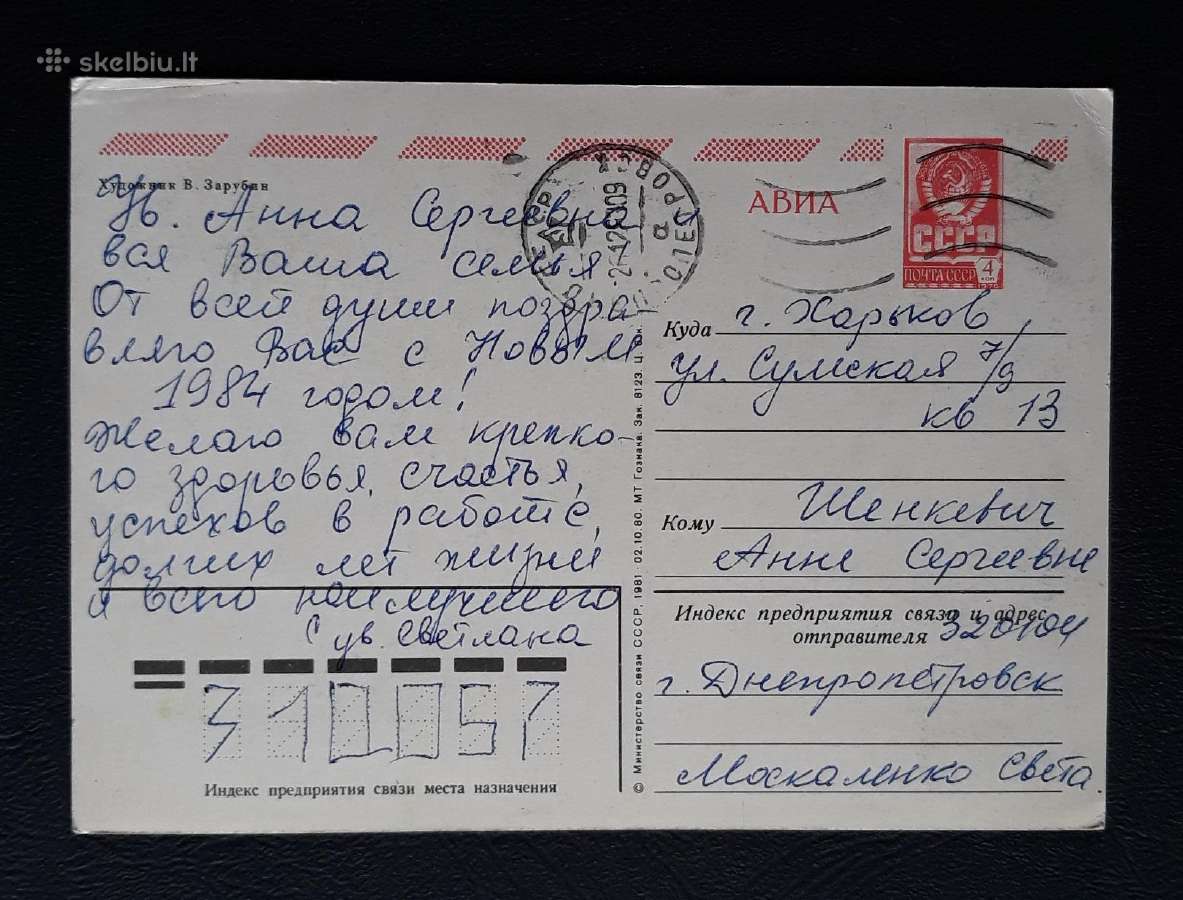 skelbiu.lt
Художник В. Зарубин
АВИА
СССР
ПОЧТА СССР 4 коп
Ув. Анна Сергеевна и
вся Ваша семья
От всей души поздра-
вляю Вас с Новым
1984 годом!
Желаю вам крепко-
го здоровья, счастья,
успехов в работе,
долгих лет жизни
и всего наилучшего
С ув. Светлана
Куда г. Харьков,
ул. Сумская 7/9
кв 13
Кому Шенкевич
Анне Сергеевне
Индекс предприятия связи и адрес
отправителя 320104
г. Днепропетровск
Москаленко Света.
310057
Индекс предприятия связи места назначения
© Министерство связи СССР, 1981 02.10.80. МТ Гознака. Зак. 8123. Ц.